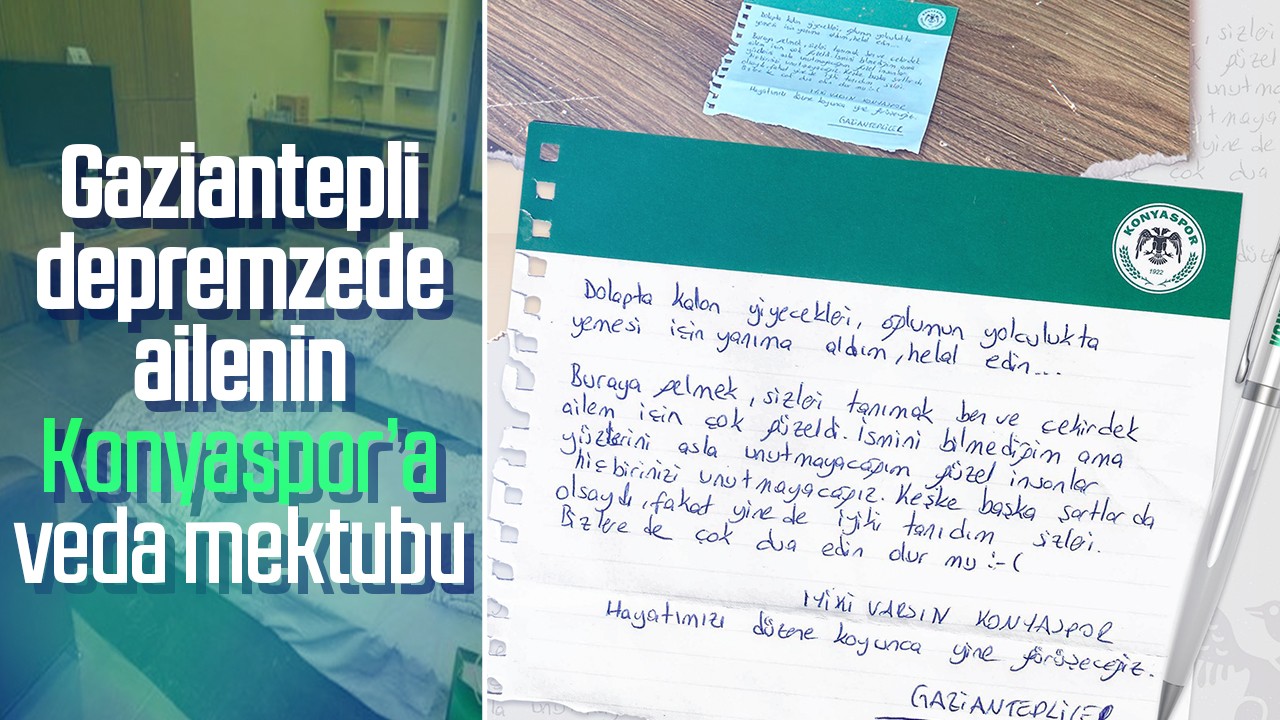 Gaziantepli
depremzede
ailenin
Konyaspor'a
veda mektubu
Dolapta kalan yiyecekleri, oğlumun yolculukta
yemesi için yanıma aldım, helal edin...
Buraya gelmek, sizleri tanımak ben ve çekirdek
ailem için çok güzeldi. İsmini bilmediğim ama
yüzlerini asla unutmayacağım güzel insanlar
hiçbirinizi unutmayacağız. Keşke başka şartlar da
olsaydı, fakat yine de iyiki tanıdım sizleri.
Bizlere de çok dua edin olur mu :-(
İYİKİ VARSIN KONYASPOR
Hayatımızı düzene koyunca yine görüşeceğiz.
GAZİANTEPLİLER
KONYASPOR
1922